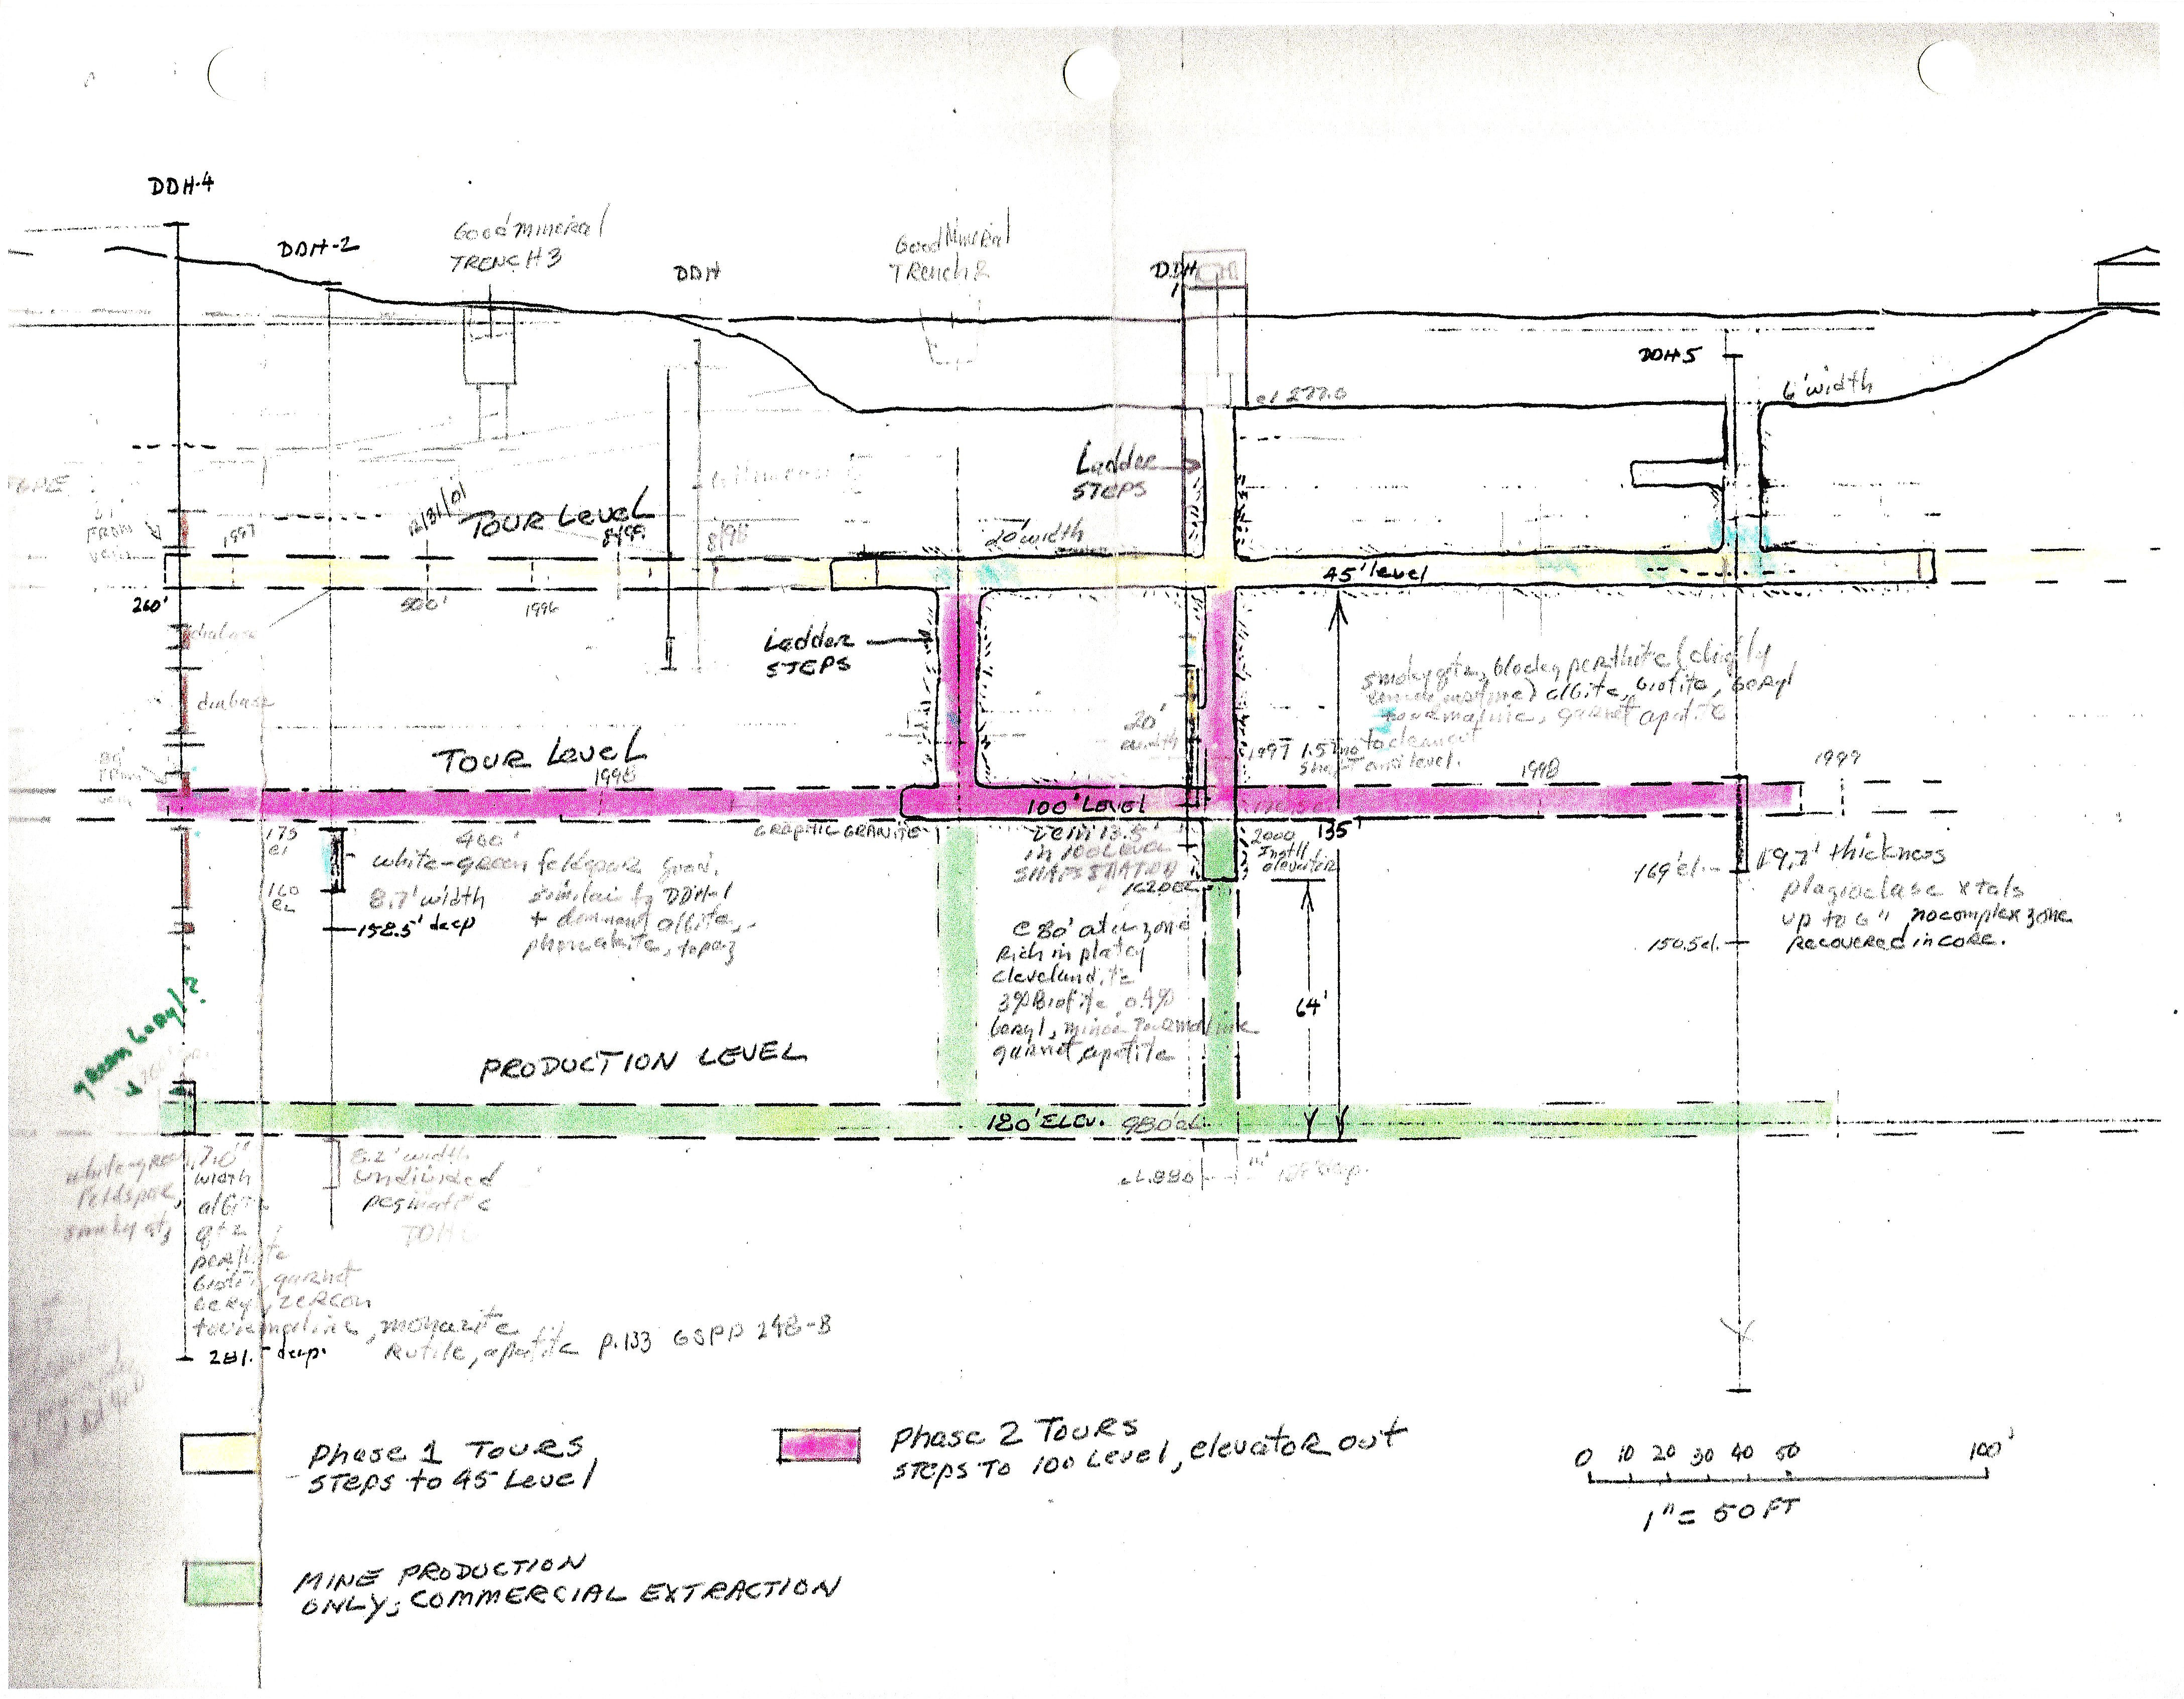 DDH-4
DDH-2
Good mineral
TRENCH 3
DDH
Good Mineral
Trench 2
DDH
1
DDH5
6' width
el 277.0
Ladder
STEPS
TOUR LEVEL
12/31/01
1997
8/99
8/98
20' width
45' level
260'
500'
1996
diabase
Ladder
STEPS
diabase
smoky qtz, blocky perthite
albite, biotite, beryl
tourmaline, garnet apatite
20'
width
1997
shaft and level.
TOUR LEVEL
1998
1998
1999
100' LEVEL
GRAPHIC GRANITE
135'
175
el
460'
white-green feldspar
8.7' width
similar to DDH-1
+ dominant albite,
phenakite, topaz
158.5' deep
160
el
vein 13.5'
in 100 LEVEL
2000
Install
elevator
169' el.
19.7' thickness
plagioclase xtals
up to 6", no complex zone
recovered in core.
150.5 el.
@ 80' zone
Rich in platey
cleavelandite
3% Biotite, 0.4%
beryl, minor Tourmaline
garnet, apatite
64'
green beryl?
PRODUCTION LEVEL
180' ELEV. 980' el.
el. 880
white-green
feldspar,
smoky qtz
7.0'
width
albite
qtz
perthite
biotite, garnet
beryl, zercon
tourmaline, monazite
Rutile, apatite p.133 GSPP 248-B
8.2' width
undivided
pegmatite
281.' deep.
Phase 1 TOURS
STEPS to 45 Level
Phase 2 TOURS
STEPS TO 100 Level, elevator out
0 10 20 30 40 50 100'
1" = 50 FT
MINE PRODUCTION
ONLY; COMMERCIAL EXTRACTION